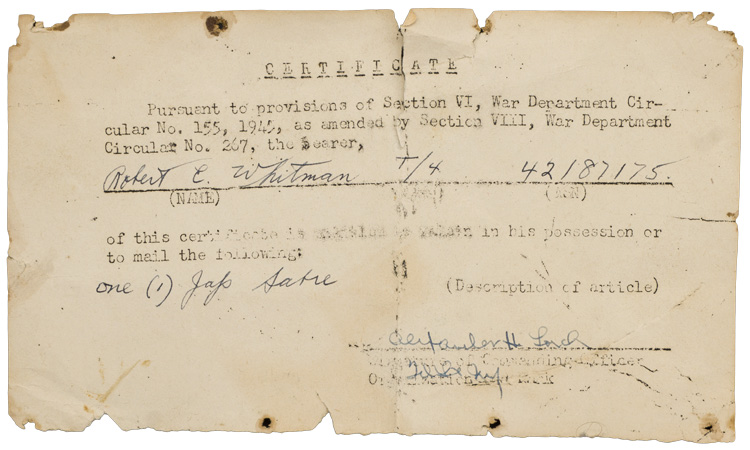 CERTIFICATE
Pursuant to provisions of Section VI, War Department Cir-
cular No. 155, 1945, as amended by Section VIII, War Department
Circular No. 267, the bearer,
Robert E. Whitman T/4 42187175.
(NAME) (ASN)
of this certificate is in his possession or
to mail the following:
one (1) Jap Sabre (Description of article)
Alexander H.
Signature of Commanding Officer